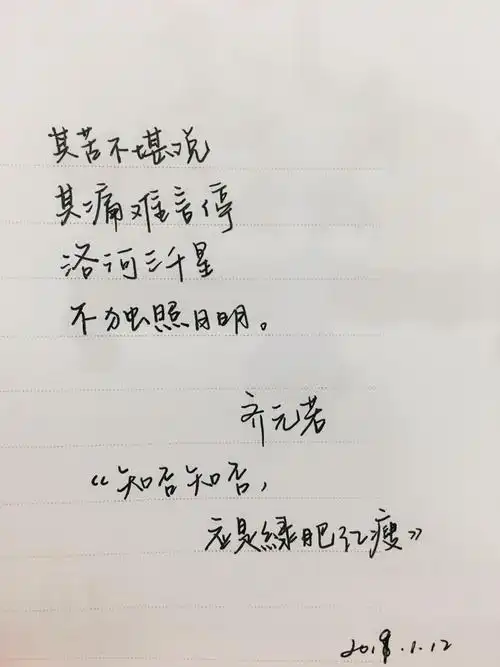 其苦不堪说
其痛难言停
洛河三千星
不独照月明。
齐元若
《知否知否,
应是绿肥红瘦》
2019.1.12